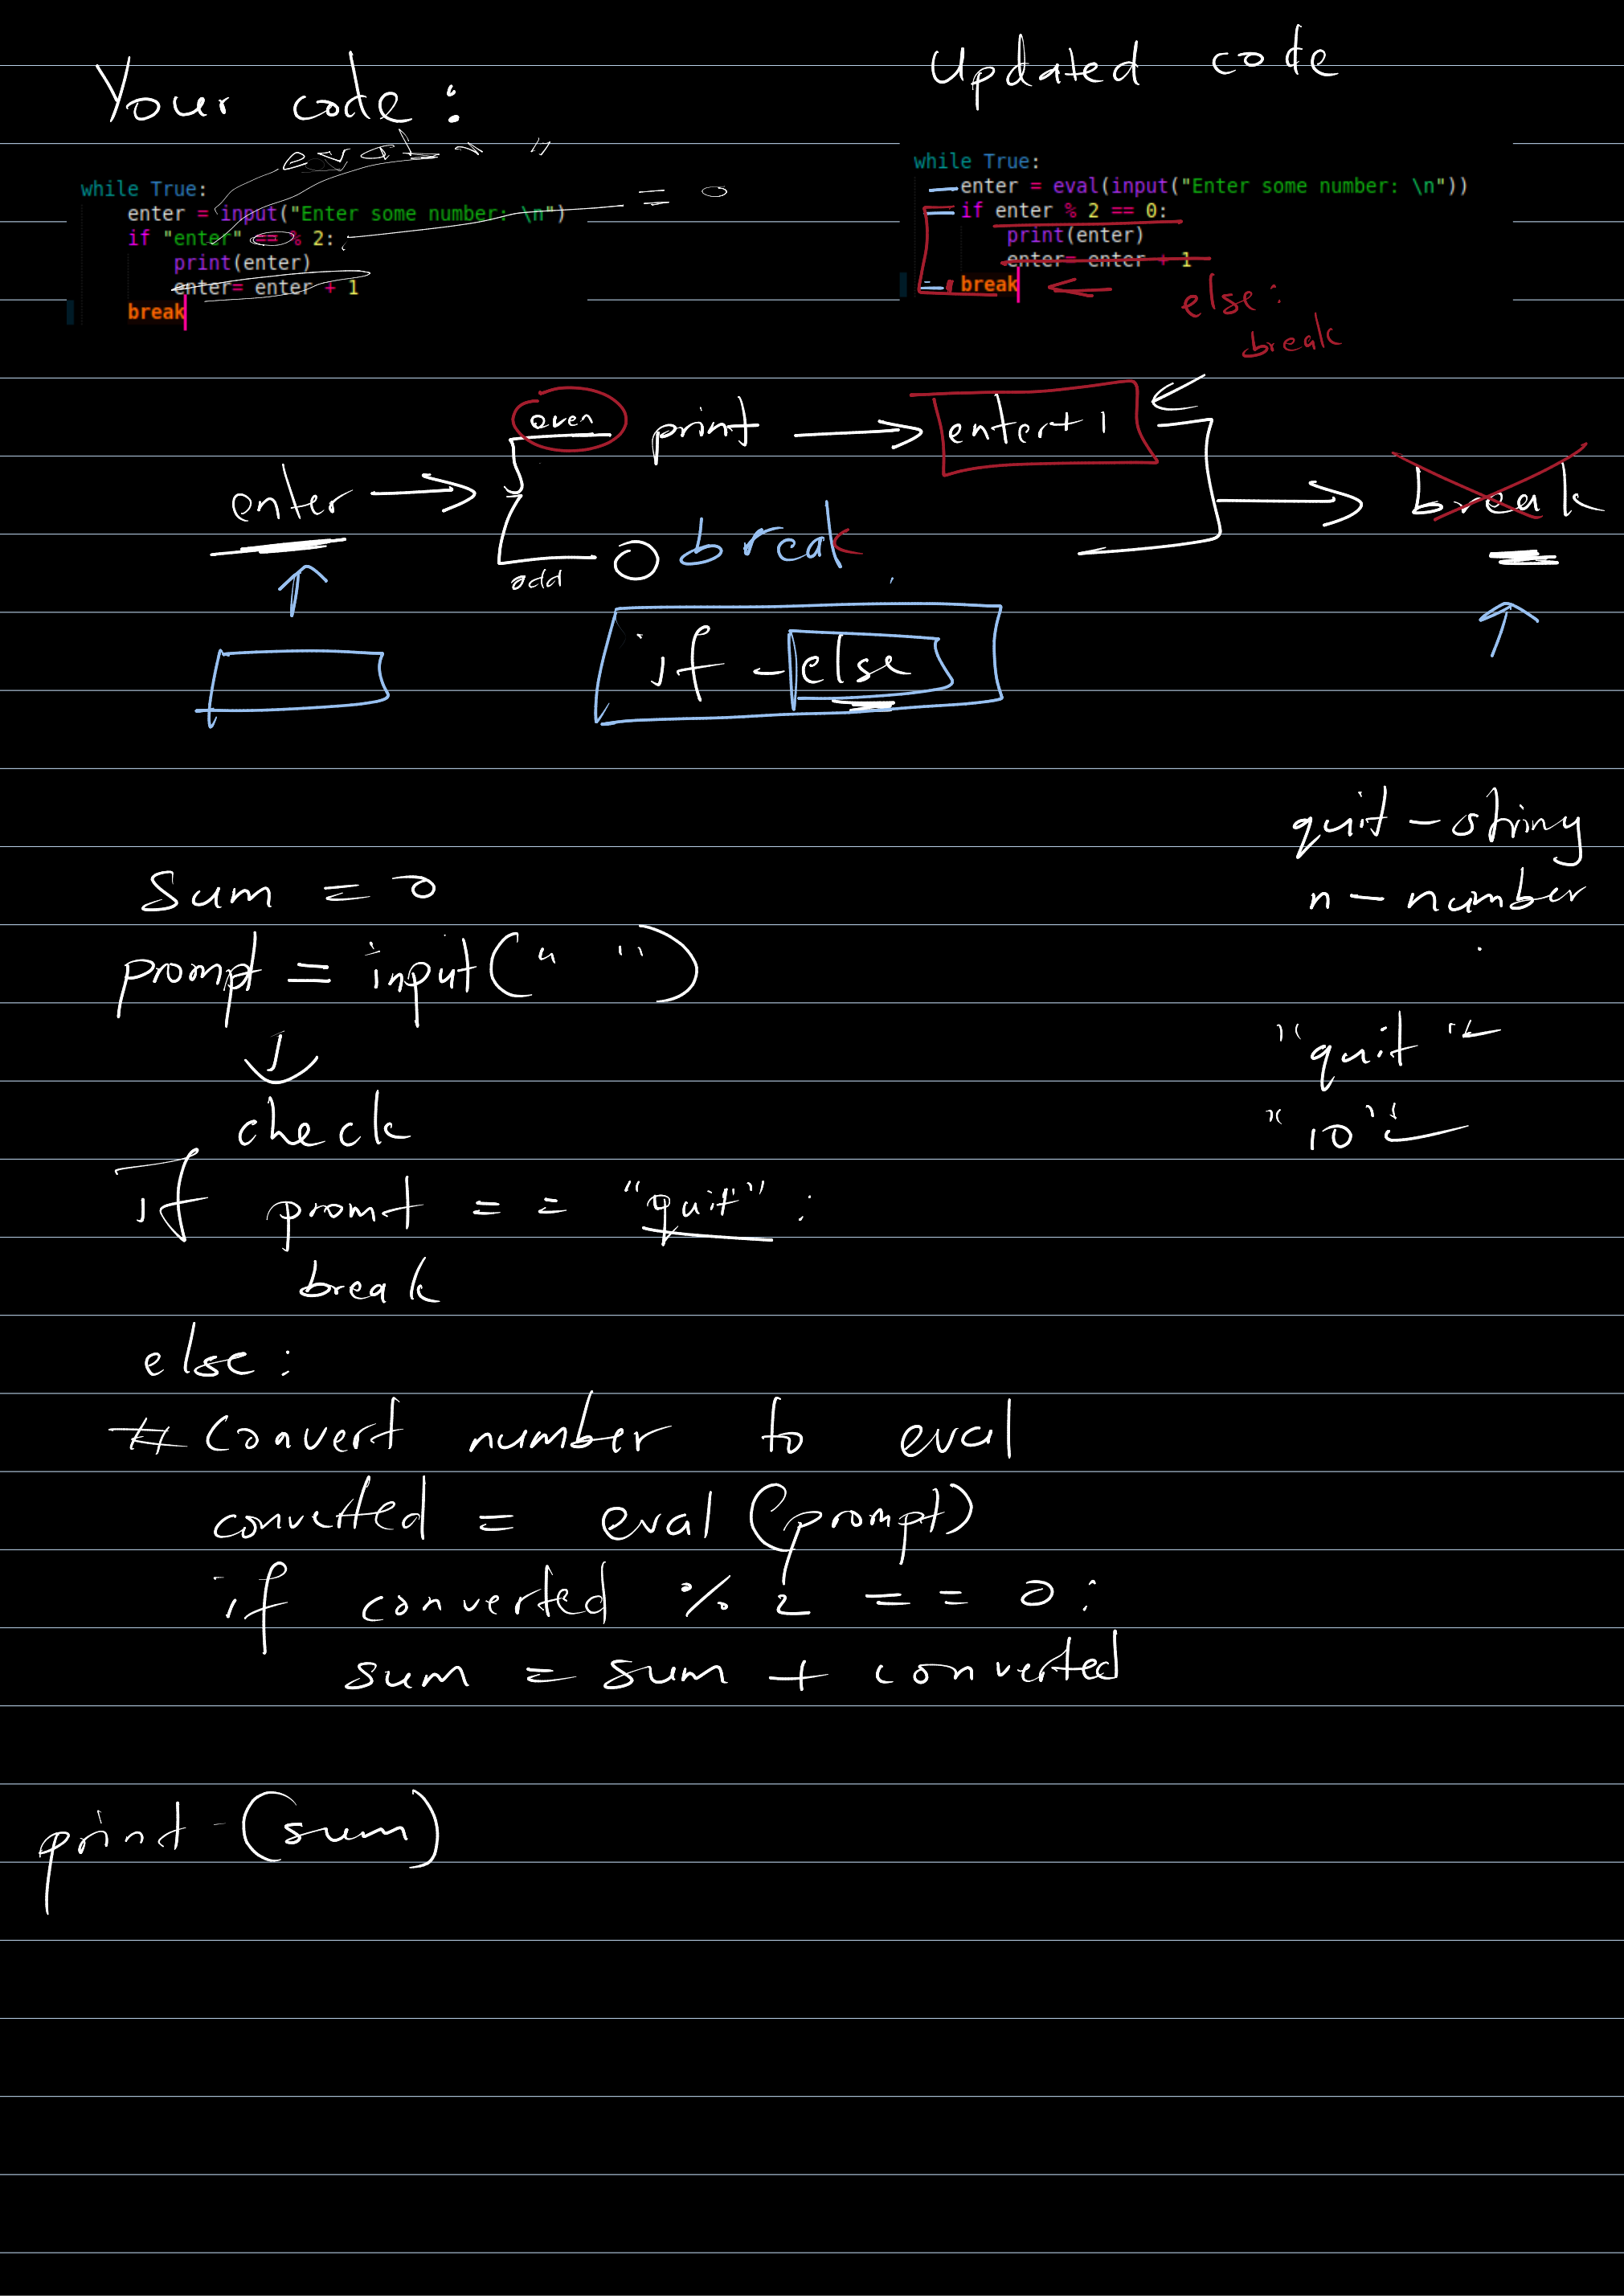 Your code:
eval " "
while True:
enter = input("Enter some number: \n")
= 0
if "enter" == % 2:
print(enter)
enter= enter + 1
break
Updated code
while True:
enter = eval(input("Enter some number: \n"))
if enter % 2 == 0:
print(enter)
enter= enter + 1
break
else:
break
even print → enter+1
enter → → break
odd O break
if - else
quit - string
n - number
"quit"
"10"
Sum = 0
prompt = input(" ")
check
if promt == "quit":
break
else:
# Convert number to eval
converted = eval (prompt)
if converted % 2 == 0:
sum = sum + converted
print (sum)